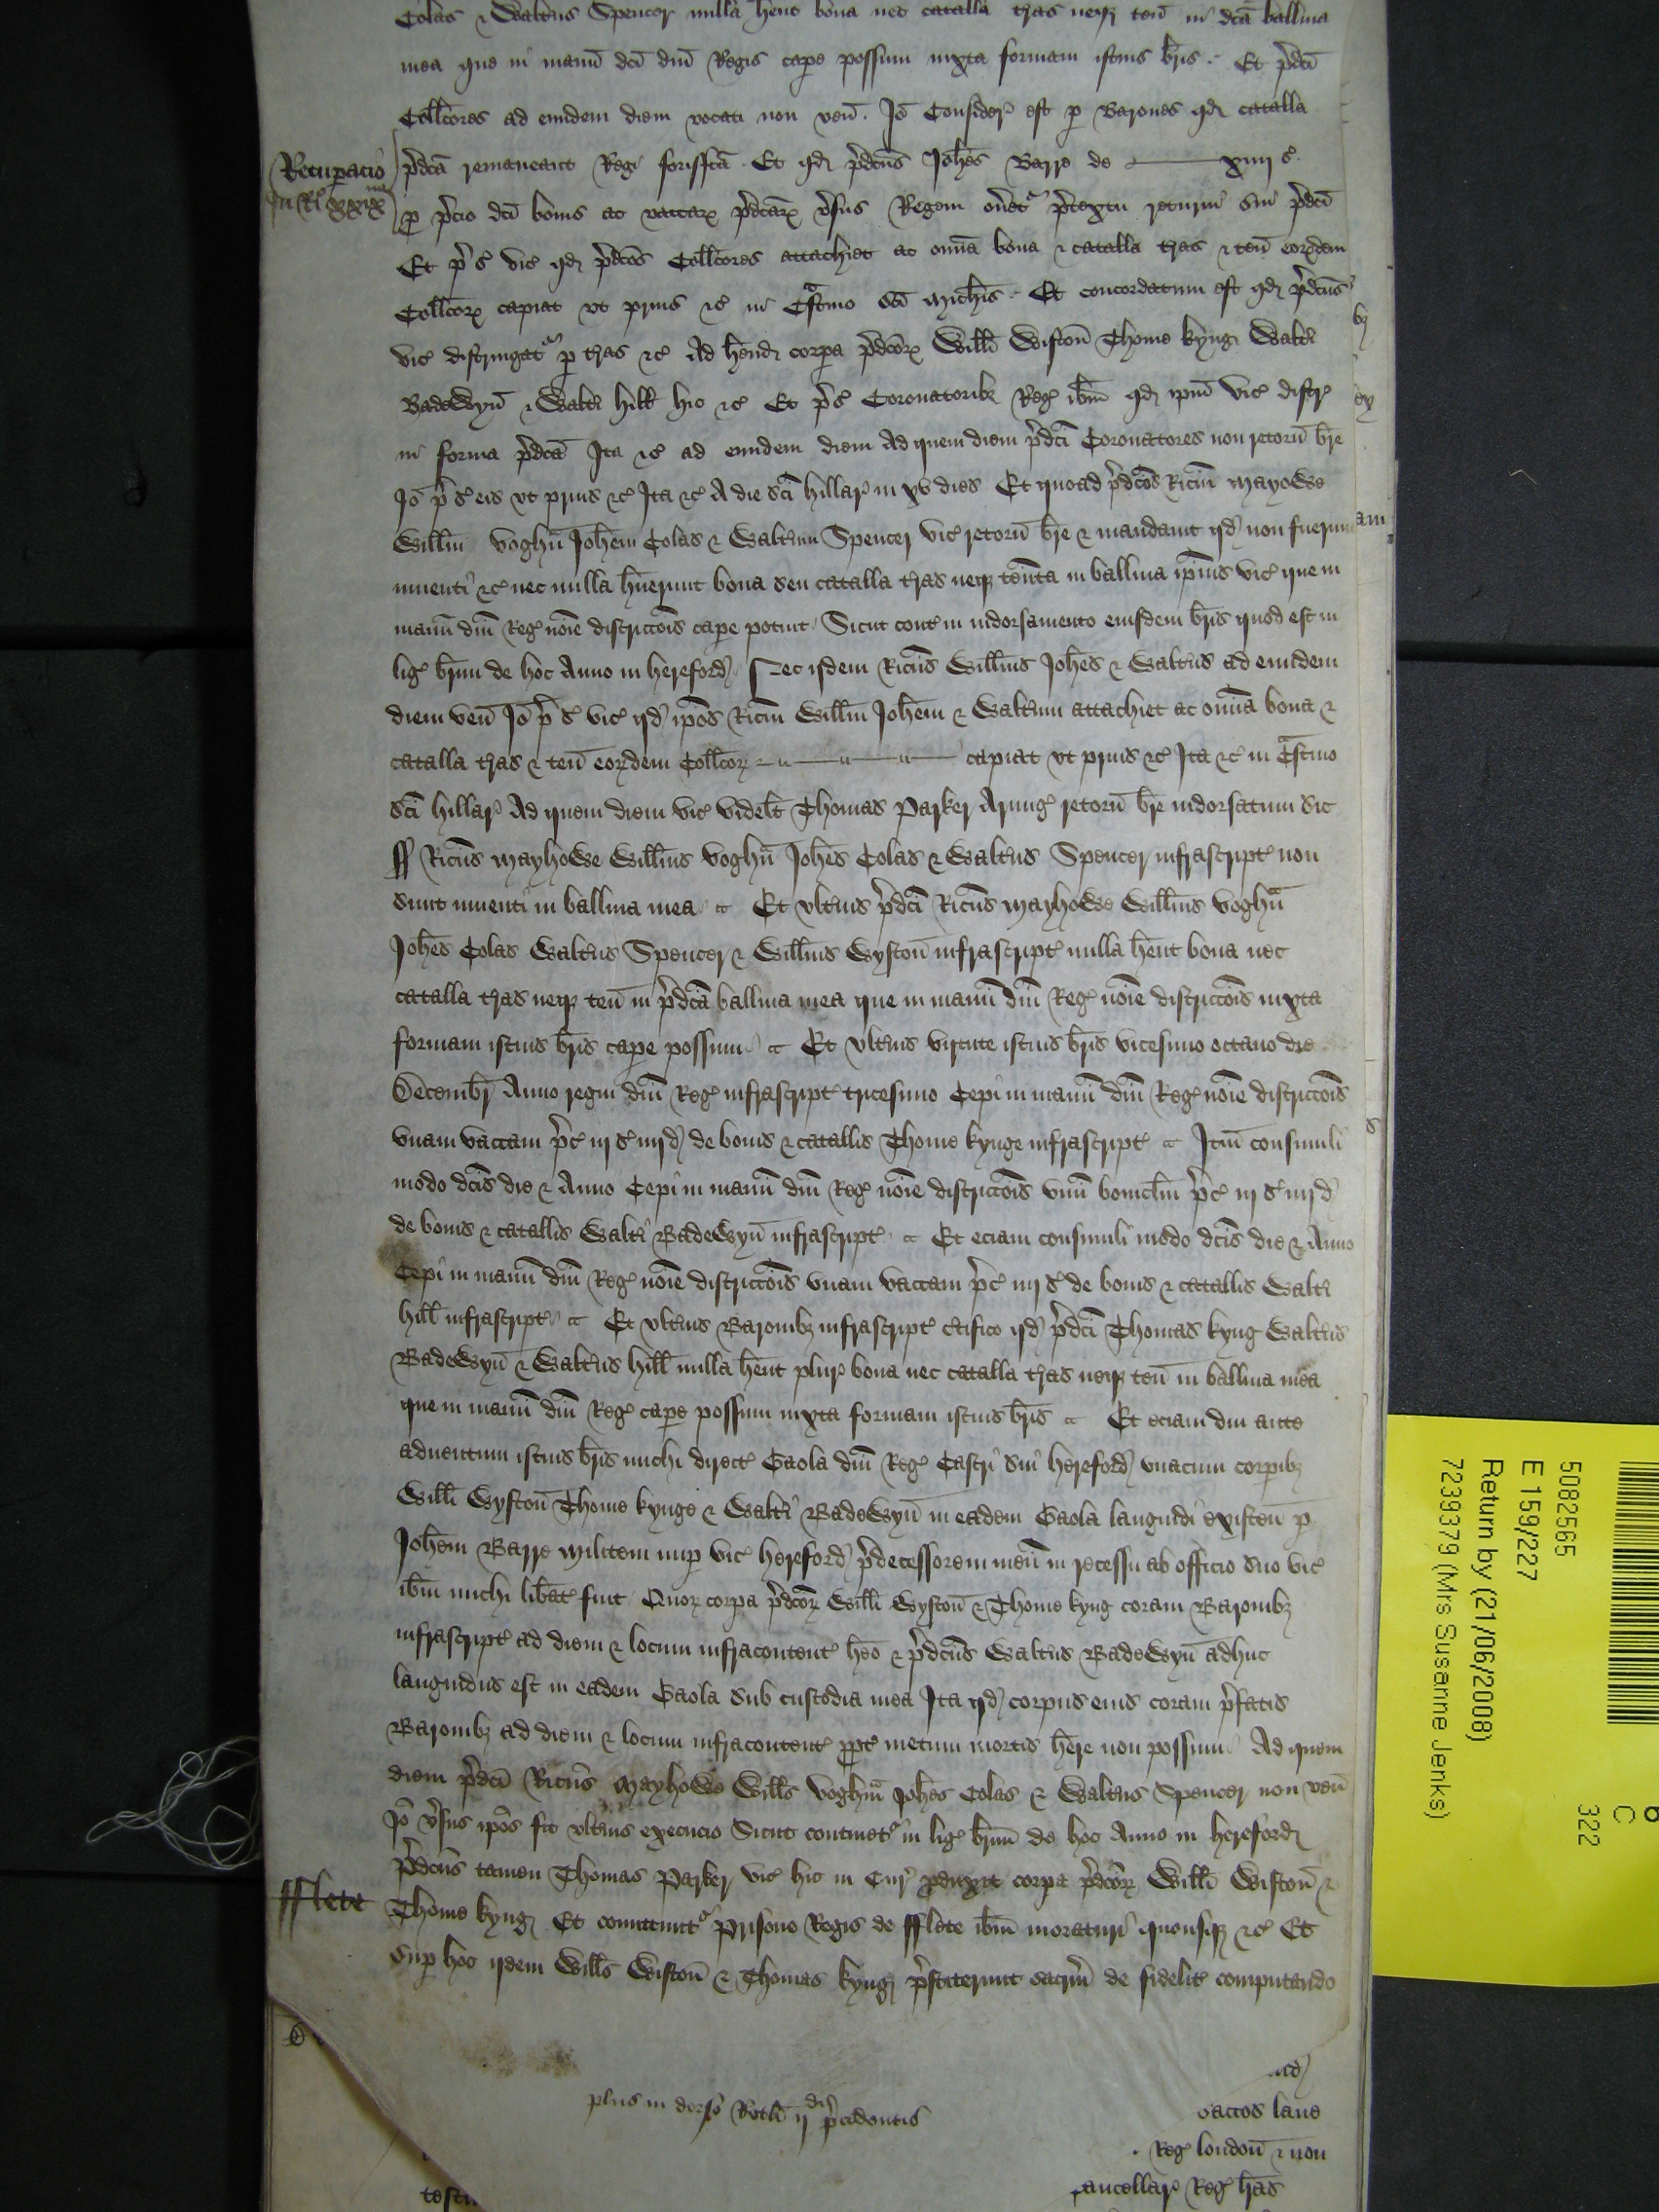 Colas & Waltus Spencer nulla hent bona nec catalla tras neqz ten in dca balliua
mea que in manu dci dni Regis cape possum iuxta formam istius bris . Et pdci
Collcores ad eundem diem vocati non ven . Io Consider est p Barones qd catalla
pdca remaneant Regi forisfca . Et qd pdcus Johes Barre de xiiij s
Recuperacio
in R xxix
p pcio dci bouis ac vaccar pdcar vsus Regem onet ptextu returni sui pdci
Et p s vic qd pdcos Collcores attachiet ac omia bona & catalla tras & ten eordem
Collcor capiat vt prius &c in Cstino sci Michis . Et concordatum est qd pdcus
vic distringat p tras &c Ad hend corpa pdcor Willi Wiston Thome kyng Walti
Badewyn & Walti hill hic &c Et p s Coronatoribz Reg ibm qd ipm vic distr
in forma pdca Ita &c ad eundem diem Ad quem diem pdci Coronatores non retorn bre
Io p s eis vt prius &c Ita &c A die sci hillar in xv dies Et quoad pdcos Ricm Mayowe
Willm Voghn Johem Colas & Waltum Spencer vic retorn bre & mandauit qd non fuerunt
inuenti &c nec nulla huerunt bona seu catalla tras neqz tenta in balliua ipius vic que in
manu dni Reg noie districcois cape potuit Sicut cont in indorsamento eiusdem bris quod est in
lig brium de hoc Anno in hereford Nec ijdem Ricus Willmus Johes & Waltus ad eundem
diem ven Io p s vic qd ipos Ricm Willm Johem & Waltum attachiet ac omia bona &
catalla tras & ten eordem Collcor capiat vt prius &c Ita &c in Cstino
sci hillar Ad quem diem vic videlt Thomas Parker Armig retorn bre indorsatum sic
ff Ricus Mayhowe Willmus Voghn Johes Colas & Waltus Spencer infrascript non
sunt inuenti in balliua mea Et vltius pdci Ricus Mayhowe Willmus Voghn
Johes Colas Waltus Spencer & Willmus Wyston infrascript nulla hent bona nec
catalla tras neqz ten in pdca balliua mea que in manu dni Reg noie districcois iuxta
formam istius bris cape possum Et vltius virtute istius bris vicesimo octauo die
Decembr Anno regni dni Reg infrascript tricesimo Cepi in manu dni Reg noie districcois
vnam vaccam pc iij s iiij d de bonis & catallis Thome kynge infrascript Itm consimili
modo dcis die & Anno Cepi in manu dni Reg noie districcois vnu bouiclm pc iij s iiij d
de bonis & catallis Walti Badewyn infrascript Et eciam consimili modo dcis die & Anno
Cepi in manu dni Reg noie districcois vnam vaccam pc iiij s de bonis & catallis Walti
hill infrascript Et vltius Baronibz infrascript ctifico qd pdci Thomas kyng Waltus
Badewyn & Waltus hill nulla hent plur bona nec catalla tras neqz ten in balliua mea
que in manu dni Reg cape possum iuxta formam istius bris Et eciam diu ante
aduentum istius bris michi direct Gaola dni Reg Castri sui hereford vnacum corpibz
Willi Wyston Thome kynge & Walti Badewyn in eadem Gaola languidi existen p
Johem Barre militem nup vic hereford pdecessorem meu in recessu ab officio suo vic
ibm michi libat fuit Quor corpa pdcor Willi Wyston & Thome kyng coram Baronibz
infrascript ad diem & locum infracontent heo & pdcus Waltus Badewyn adhuc
languidus est in eadem Gaola sub custodia mea Ita qd corpus eius coram pfatis
Baronibz ad diem & locum infracontent ppt metum mortis here non possum Ad quem
diem pdci Ricus Mayhowe Wills Voghn Johes Colas & Waltus Spencer non ven
Io vsus ipos fit vltius execucio Sicut continet in lig brium de hoc Anno in hereford
pdcus tamen Thomas Parker vic hic in Cur pduxit corpa pdcor Willi Wiston &
fflete
Thome kyng Et comittunt prisone Regis de fflete ibm moraturi quousqz &c Et
sup hoc ijdem Wills Wiston & Thomas kyng pstiterunt sacrm de fidelit computando
plus in dorso Rotli ij pcedentis
saccos lane
Reg london & non
Reg has
5082565
E 159/227
Return by (21/06/2008)
7239379 (Mrs Susanne Jenks)
C
322